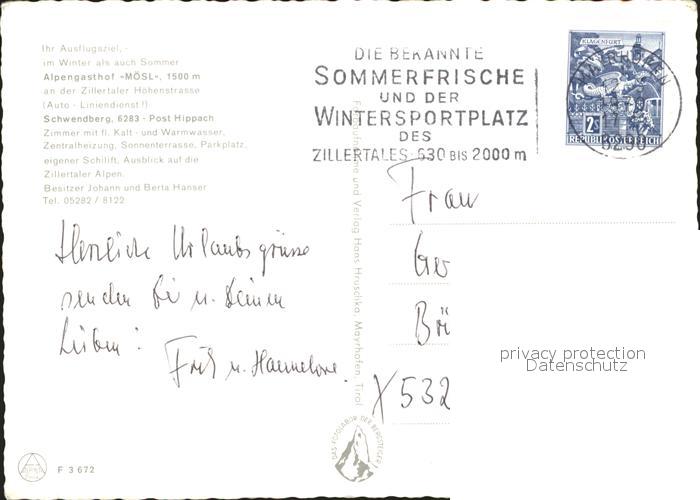 Ihr Ausflugsziel,-
im Winter als auch Sommer
Alpengasthof »MÖSL«, 1500 m
an der Zillertaler Höhenstrasse
(Auto - Liniendienst!)
Schwendberg, 6283 - Post Hippach
Zimmer mit fl. Kalt - und Warmwasser,
Zentralheizung, Sonnenterrasse, Parkplatz,
eigener Schilift, Ausblick auf die
Zillertaler Alpen.
Besitzer Johann und Berta Hanser
Tel. 05282 / 8122
DIE BEKANNTE
SOMMERFRISCHE
UND DER
WINTERSPORTPLATZ
DES
ZILLERTALES·630 BIS 2000 m
KLAGENFURT
2
REPUBLIK ÖSTERREICH
MAYRHOFEN
Herzliche Urlaubsgrüsse
senden Dir u. Deinen
Lieben:
Fritz u. Hannelore.
Fotoaufnahme und Verlag Hans Hruschka, Mayrhofen, Tirol
Frau
Ge
Bö
X 532
privacy protection
Datenschutz
DAS FOTOLABOR DER BERGSTEIGER
F 3 672